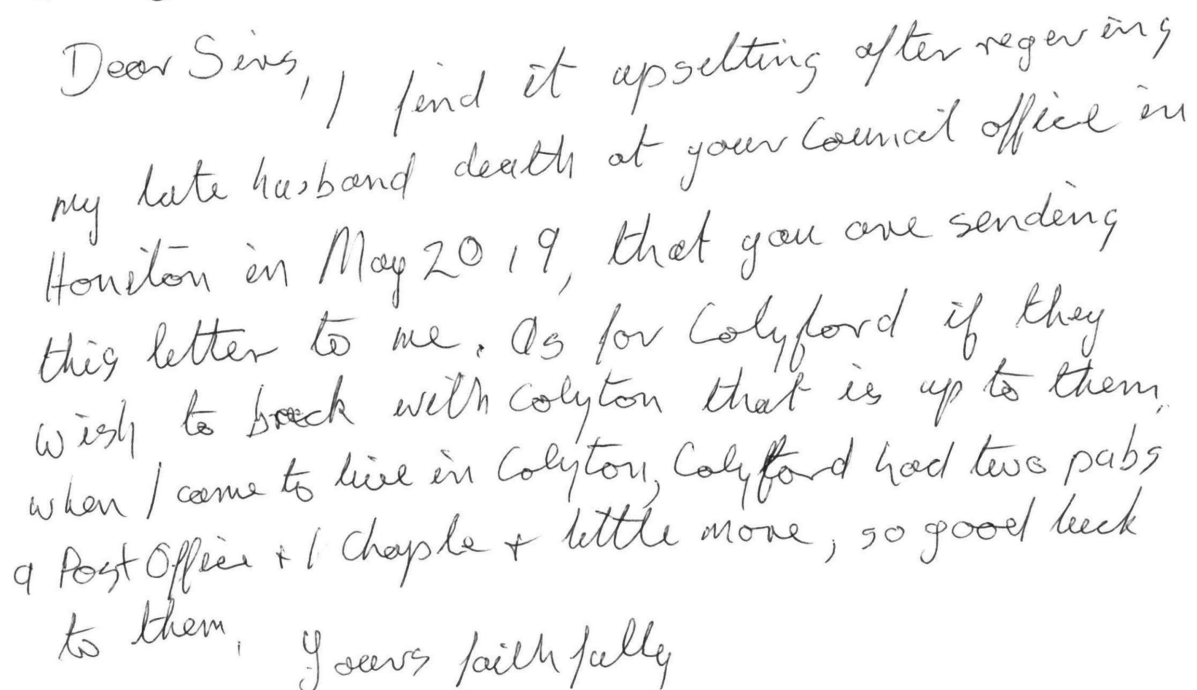 Dear Sirs, I find it upsetting after regering
my late husband death at your Council office in
Honiton in May 2019, that you are sending
this letter to me. As for Colyford if they
wish to break with Colyton that is up to them,
when I came to live in Colyton, Colyford had two pubs
a Post Office + 1 Chaple + little more, so good luck
to them,
Yours faithfully